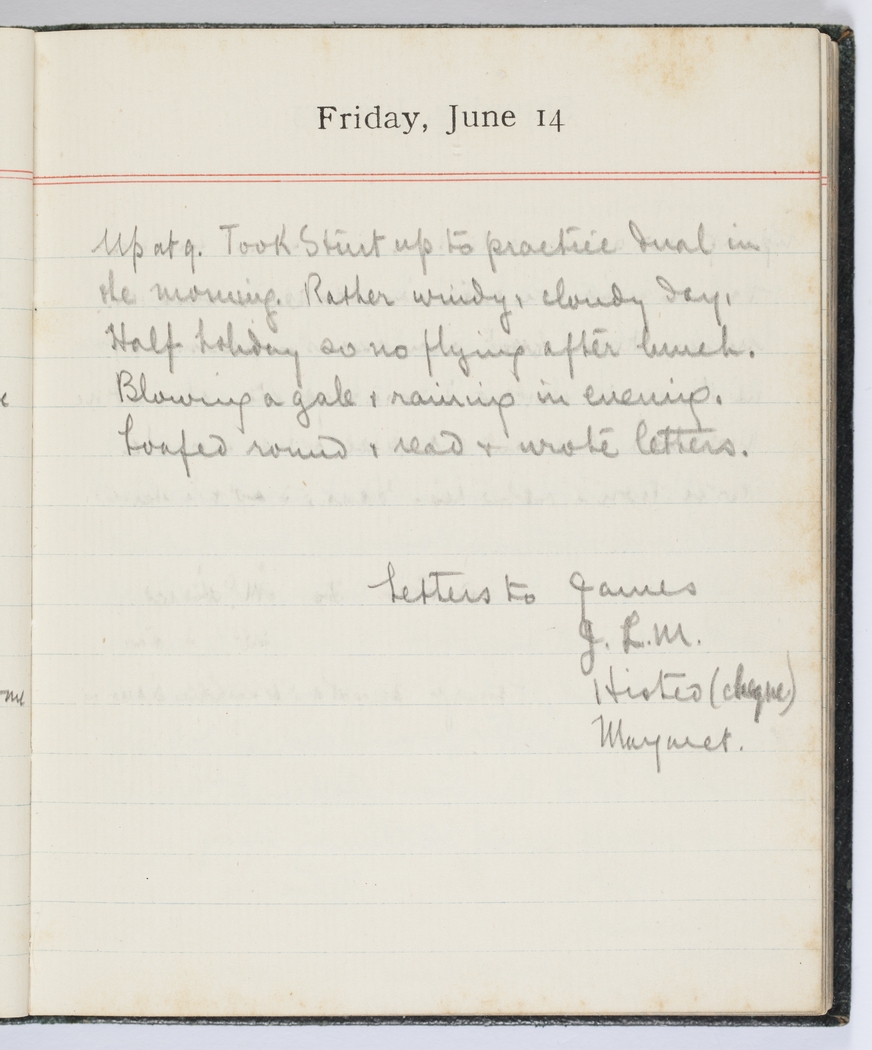 Friday, June 14
Up at 9. Took Sturt up to practice dual in
the morning. Rather windy, cloudy day.
Half holiday so no flying after lunch.
Blowing a gale & raining in evening.
Loafed round & read & wrote letters.
Letters to James
J. L. M.
Histed (cheque)
Margaret.